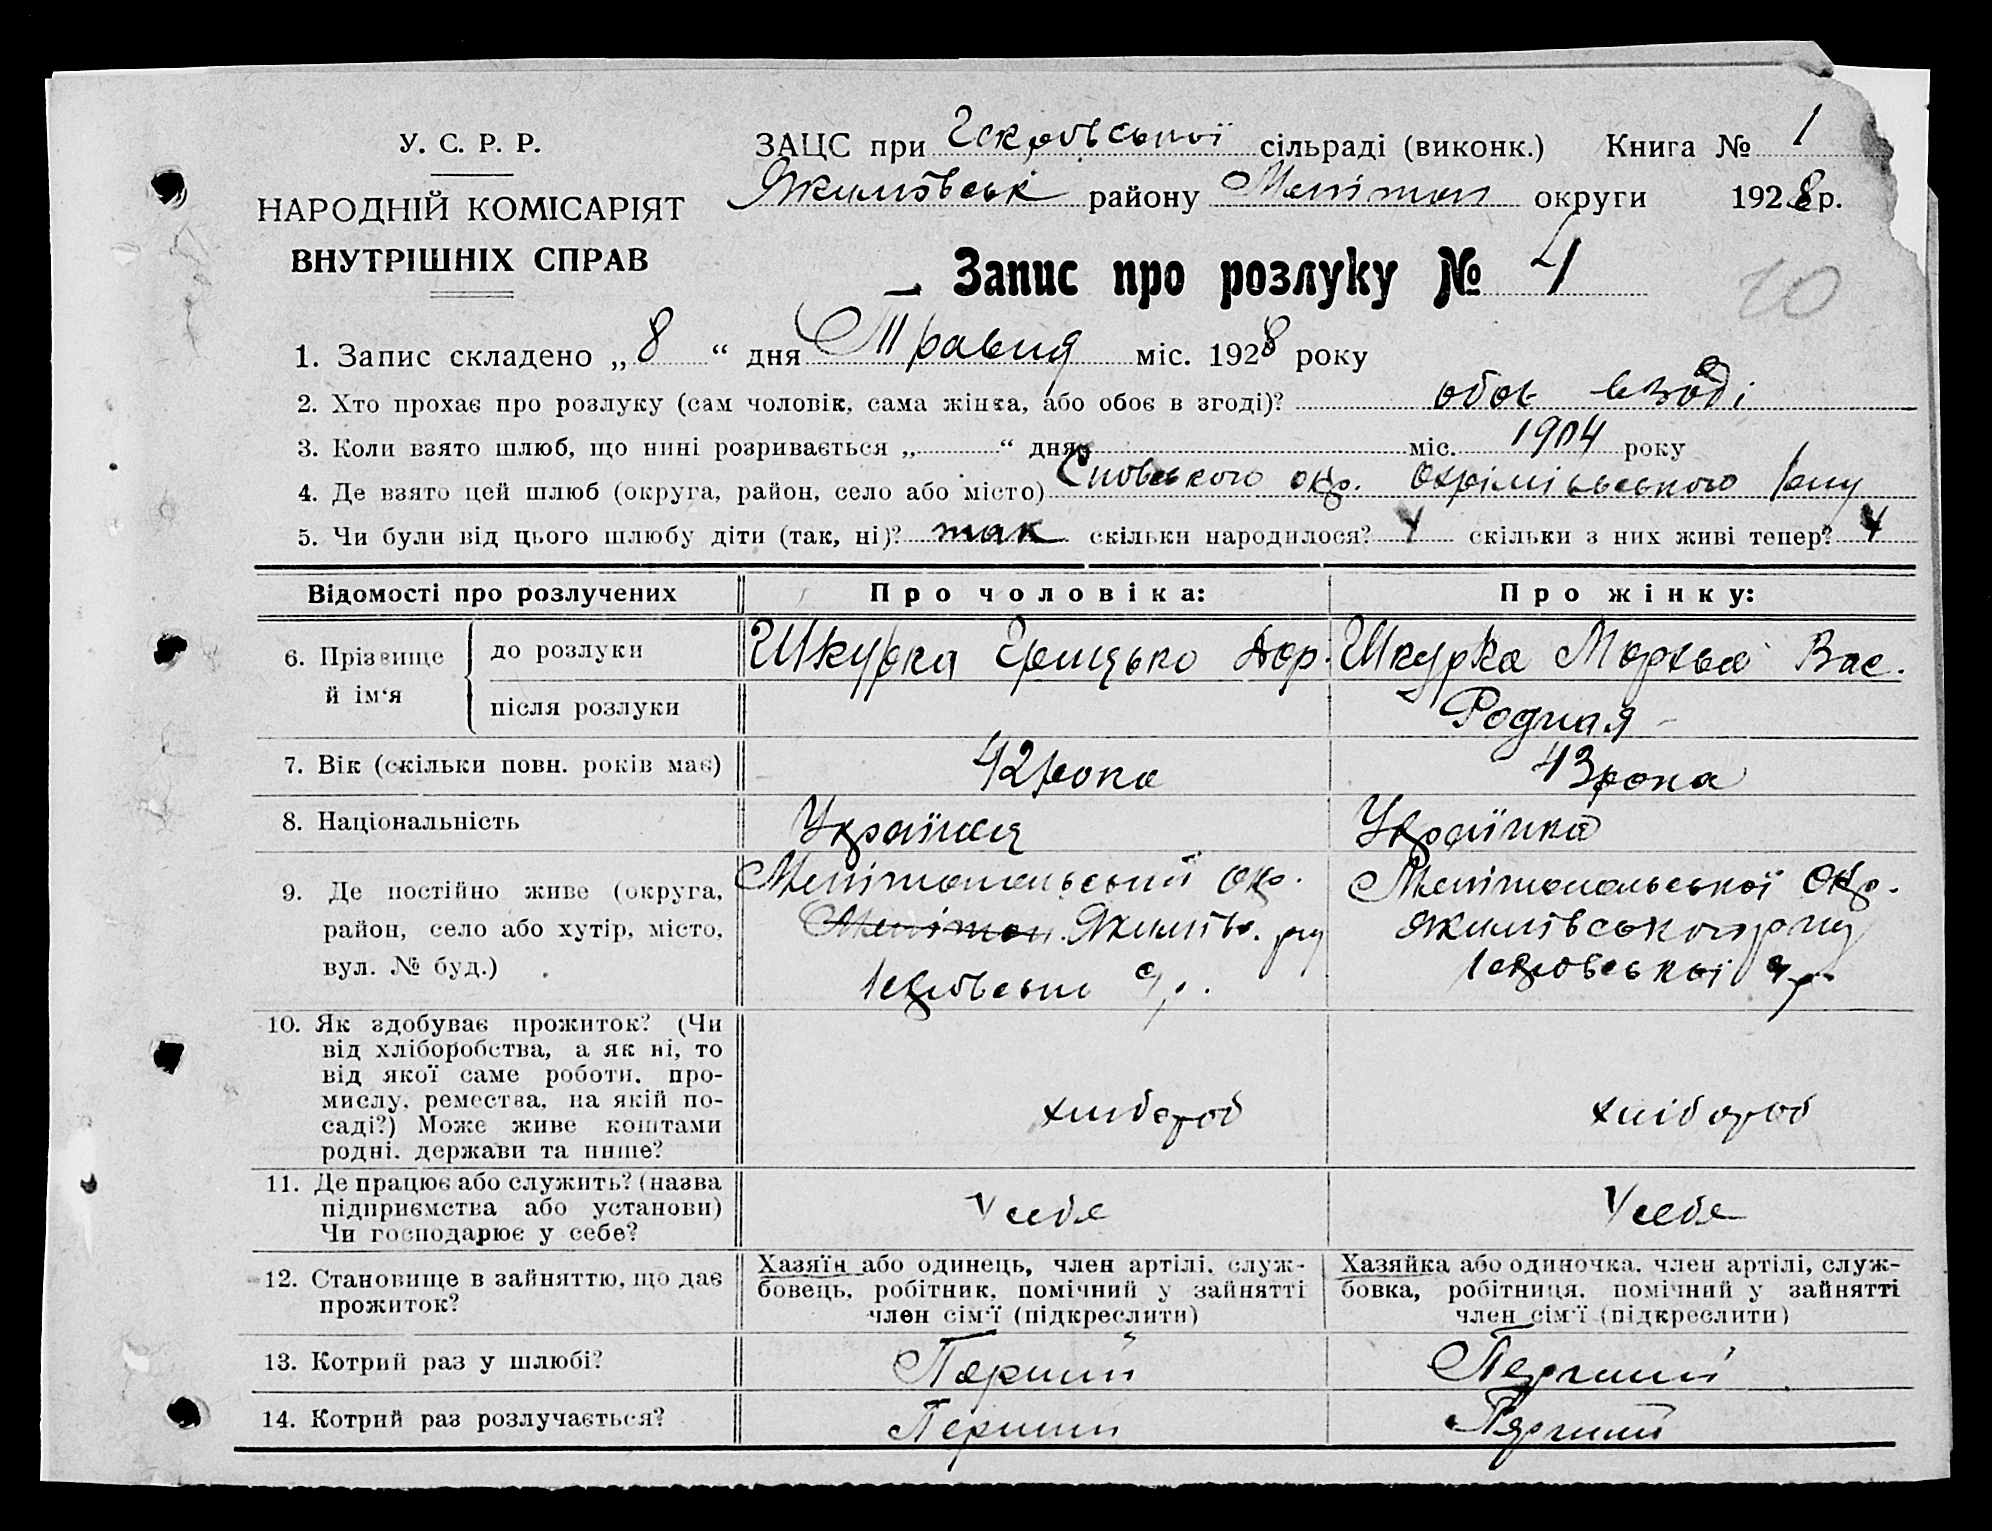 У. С. Р. Р.
НАРОДНІЙ КОМІСАРІЯТ
ВНУТРІШНІХ СПРАВ
ЗАЦС при сільраді (виконк.) Книга № 1
Якимівськ району Меліт округи 1928 р.
Запис про розлуку № 4
10
1. Запис складено „ 8 “ дня Травня міс. 1928 року
2. Хто прохає про розлуку (сам чоловік, сама жінка, або обоє в згоді)? обоє взгоді
3. Коли взято шлюб, що нині розривається „ “ дня міс. 1904 року
4. Де взято цей шлюб (округа, район, село або місто) окр.
5. Чи були від цього шлюбу діти (так, ні)? так скільки народилося? 4 скільки з них живі тепер? 4
Відомості про розлучених Про чоловіка: Про жінку:
6. Прізвище й ім‘я
до розлуки Шкурка Грицько Шкурка Вас.
після розлуки Родная
7. Вік (скільки повн. років має) 42 рока 43 рока
8. Національність Українец Українка
9. Де постійно живе (округа, Мелітопольський окр. Мелітопольської окр.
район, село або хутір, місто, Мелітоп. Якимів. рну Якимівського рну
вул. № буд.)
10. Як здобуває прожиток? (Чи
від хліборобства, а як ні, то
від якої саме роботи, про-
мислу, ремества, на якій по-
саді?) Може живе коштами
родні, держави та инше? хлибороб хлібороб
11. Де працює або служить? (назва
підприємства або установи)
Чи господарює у себе? У себе У себе
12. Становище в зайняттю, що дає
прожиток?
Хазяїн або одинець, член артілі, служ-
бовець, робітник, помічний у зайнятті
член сім‘ї (підкреслити)
Хазяйка або одиночка, член артілі, служ-
бовка, робітниця, помічний у зайнятті
член сім‘ї (підкреслити)
13. Котрий раз у шлюбі? Перший Перший
14. Котрий раз розлучається? Перший Перший